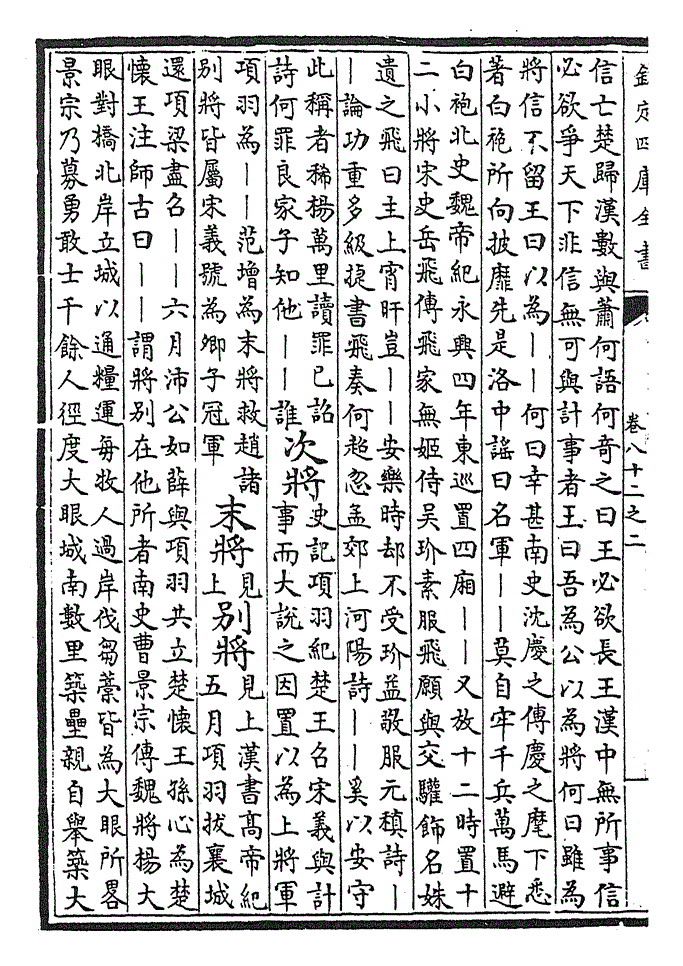 欽定四庫全書
卷八十二之二
信亡楚歸漢數與蕭何語何奇之曰王必欲長王漢中無所事信
必欲爭天下非信無可與計事者王曰吾為公以為將何曰雖為
將信不留王曰以為——何曰幸甚南史沈慶之傳慶之麾下悉
著白袍所向披靡先是洛中謡曰名軍——莫自牢千兵萬馬避
白袍北史魏帝紀永興四年東巡置四廂——又放十二時置十
二小將宋史岳飛傳飛家無姬侍吳玠素服飛願與交驩飾名姝
遺之飛曰主上宵旰豈——安樂時却不受玠益敬服元稹詩—
—論功重多級捷書飛奏何超忽孟郊上河陽詩——奚以安守
此稱者稀楊萬里讀罪已詔
詩何罪良家子知他——誰
次將
史記項羽紀楚王召宋義與計
事而大說之因置以為上將軍
項羽為——范增為末將救趙諸
別將皆屬宋義號為卿子冠軍
末將
見
上
別將
見上漢書高帝紀
五月項羽拔襄城
還項梁盡召——六月沛公如薛與項羽共立楚懷王孫心為楚
懷王注師古曰——謂將別在他所者南史曹景宗傳魏將楊大
眼對橋北岸立城以通糧運每牧人過岸伐芻藁皆為大眼所畧
景宗乃募勇敢士千餘人徑度大眼城南數里築壘親自舉築大